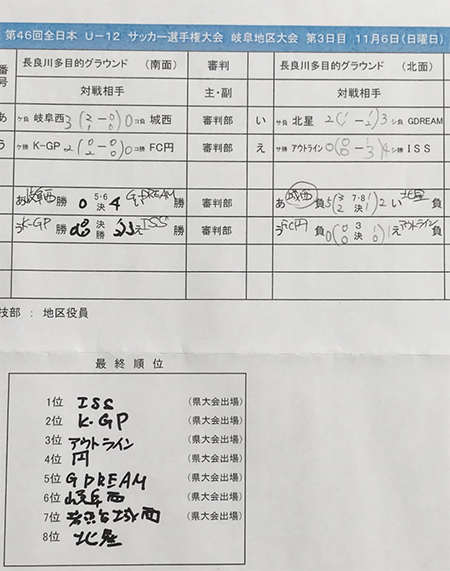 第46回全日本 U-12 サッカー選手権大会 岐阜地区大会 第3日目 11月6日(日曜日)
番号 長良川多目的グラウンド (南面) 審判 長良川多目的グラウンド (北面)
対戦相手 主・副 対戦相手
あ ケ負 岐阜西 3 (2-0 1-0) 0 コ負 城西 審判部 い サ負 北星 2 (1-1 1-2) 3 シ負 GDREAM
う ケ勝 K-GP 2 (0-0 2-0) 0 コ勝 FC円 審判部 え サ勝 アウトライン 0 (0-1 0-3) 4 シ勝 ISS
あ 岐阜西 勝 0 5・6決 4 GDREAM 勝 審判部 あ 城西 負 5 (3 7・8 1 2 決 1) 2 い 北星 負
う K-GP 勝 決勝 え ISS 勝 審判部 う FC円 負 0 (0 3決 1) 1 え アウトライン 負
技部 : 地区役員
最終順位
1位 ISS (県大会出場)
2位 K-GP (県大会出場)
3位 アウトライン (県大会出場)
4位 円 (県大会出場)
5位 GDREAM (県大会出場)
6位 岐阜西 (県大会出場)
7位 城西 (県大会出場)
8位 北星